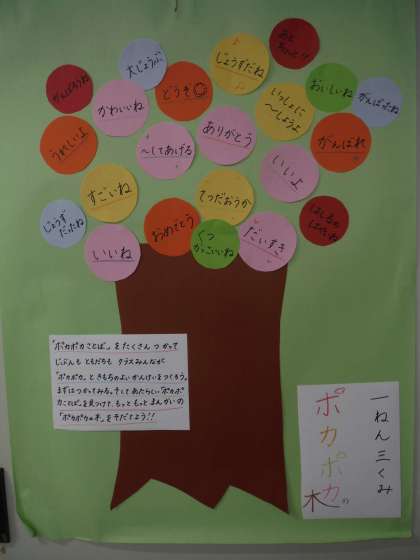 大じょうぶ
じょうずだね
あと
ちょっと!!
がんばろうね
かわいいね
どうぞ
いっしょに
～しようよ
おいしいね
がんばったね
うれしいよ
～してあげる
ありがとう
がんばれ
すごいね
てつだおうか
いいよ
じょうず
だったね
いいね
おめでとう
くつ
かっこいいね
だいすき
「ポカポカことば」をたくさんつかって
じぶんもともだちもクラスみんなが
「ポカポカ」ときもちのよいかんけいをつくろう。
まずはつかってみる。そしてあたらしい「ポカポカ
ことば」を見つけて、もっともっとまんかいの
「ポカポカの木」をそだてよう!!
一ねん三くみ
ポカポカの
木